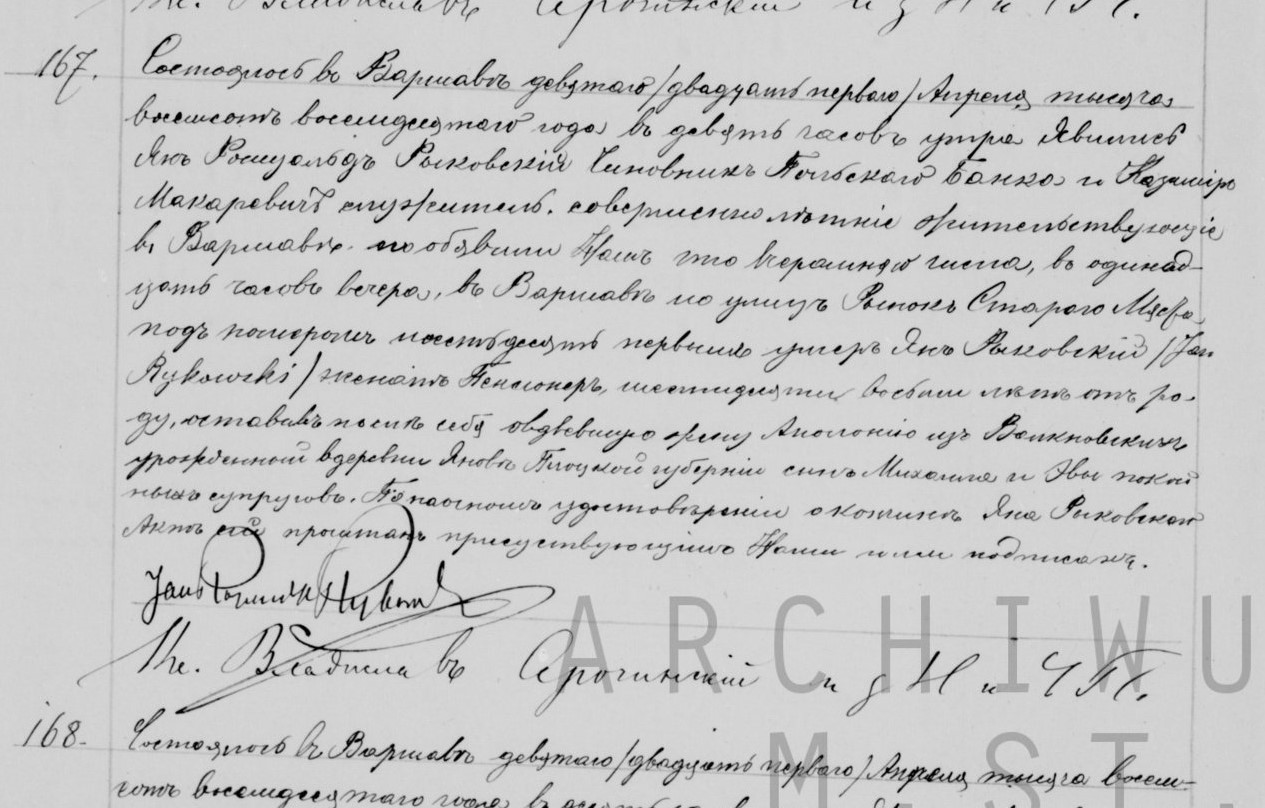 167.
Состоялось въ Варшавѣ девятаго /двадцать перваго/ Апреля тысяча
восемсотъ восемидесятаго года въ девять часовъ утра Явились
Янъ Ромуальдъ Рыковскій Чиновникъ Польскаго Банка и Казимиръ
Макаревичъ служитель. совершеннолѣтніе жительствующіе
въ Варшавѣ. и объявили Намъ что вчерашняго числа, въ одинад-
цать часовъ вечера, въ Варшавѣ по улицѣ Рынокъ Стараго Мяста
подъ номеромъ шестьдесять первымъ умеръ Янъ Рыковскій /Jan
Rykowski/ женатъ Пенсіонеръ, шестидесяти восьми лѣтъ отъ ро-
ду, оставивъ послѣ себя овдовѣвшую жену Аполонію изъ
урожденный в деревни Яновѣ Плоцкой губерніи сынъ Михаила и Эвы покой
ныхъ супруговъ. По настоящемъ удостовѣреніи о кончинѣ Яна Рыковскаго
Актъ сей прочитанъ присуствующимъ Нами и ими подписанъ.
Jan Romuald Rykowski
Кс. Владиславъ и д Н и Ч Г С.
168.
Состоялось въ Варшавѣ девятаго /двадцать перваго/ Апреля тысяча восем-
сотъ восемидесятаго года въ
ARCHIWU
M.ST.